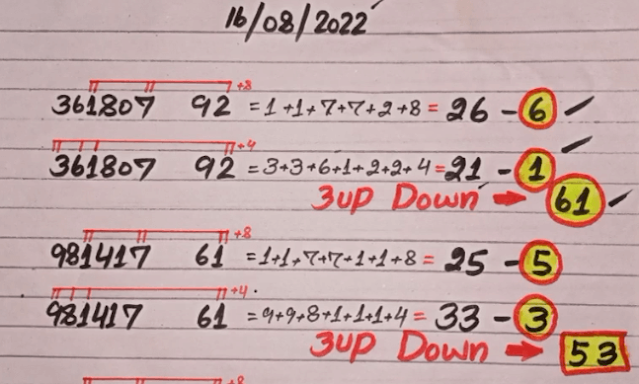 16/08/2022
+8
361807 92 =1+1+7+7+2+8= 26 - 6
+4
361807 92 =3+3+6+1+2+2+4=21 - 1
3up Down 61
+8
981417 61 =1+1+7+7+1+1+8= 25 - 5
+4
981417 61 =9+9+8+1+1+1+4= 33 - 3
3up Down 53
+8